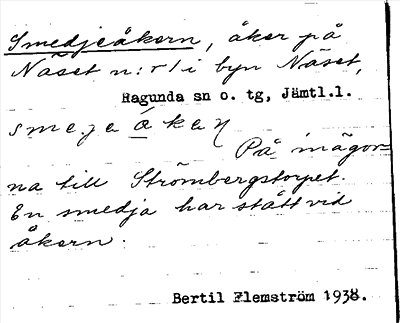 Smedjeåkern, åker på
Näset n:r 1 i byn Näset,
Ragunda sn o. tg, Jämtl.l.
smejeåkaɳ
På inägor-
na till Strömbergstorpet.
En smedja har stått vid
åkern.
Bertil Flemström 1938.